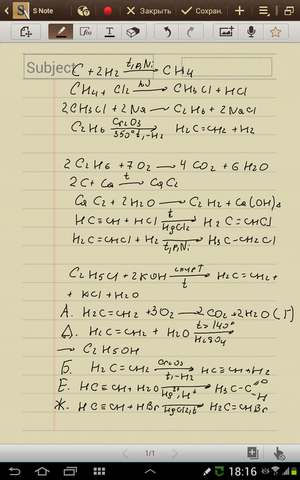 S Note
Закрыть
Сохран.
Subject
C + 2H₂ —t, p, Ni→ CH₄
CH₄ + Cl₂ —hν→ CH₃Cl + HCl
2CH₃Cl + 2Na → C₂H₆ + 2NaCl
C₂H₆ —Cr₂O₃, 350°t, -H₂→ H₂C=CH₂ + H₂
2C₂H₆ + 7O₂ → 4CO₂ + 6H₂O
2C + Ca —t→ CaC₂
CaC₂ + 2H₂O → C₂H₂ + Ca(OH)₂
HC≡CH + HCl —t, HgCl₂→ H₂C=CHCl
H₂C=CHCl + H₂ —t, p, Ni→ H₃C-CH₂Cl
C₂H₅Cl + 2KOH —спирт, t→ H₂C=CH₂ +
+ KCl + H₂O
А. H₂C=CH₂ + 3O₂ → 2CO₂ + 2H₂O (Г)
Д. H₂C=CH₂ + H₂O —t>140°, H₂SO₄
→ C₂H₅OH
Б. H₂C=CH₂ —Cr₂O₃, t, -H₂→ HC≡CH + H₂
Е. HC≡CH + H₂O —Hg²⁺, H⁺→ H₃C-C=O -H
Ж. HC≡CH + HBr —HgCl₂, t→ H₂C=CHBr
1/1
18:16